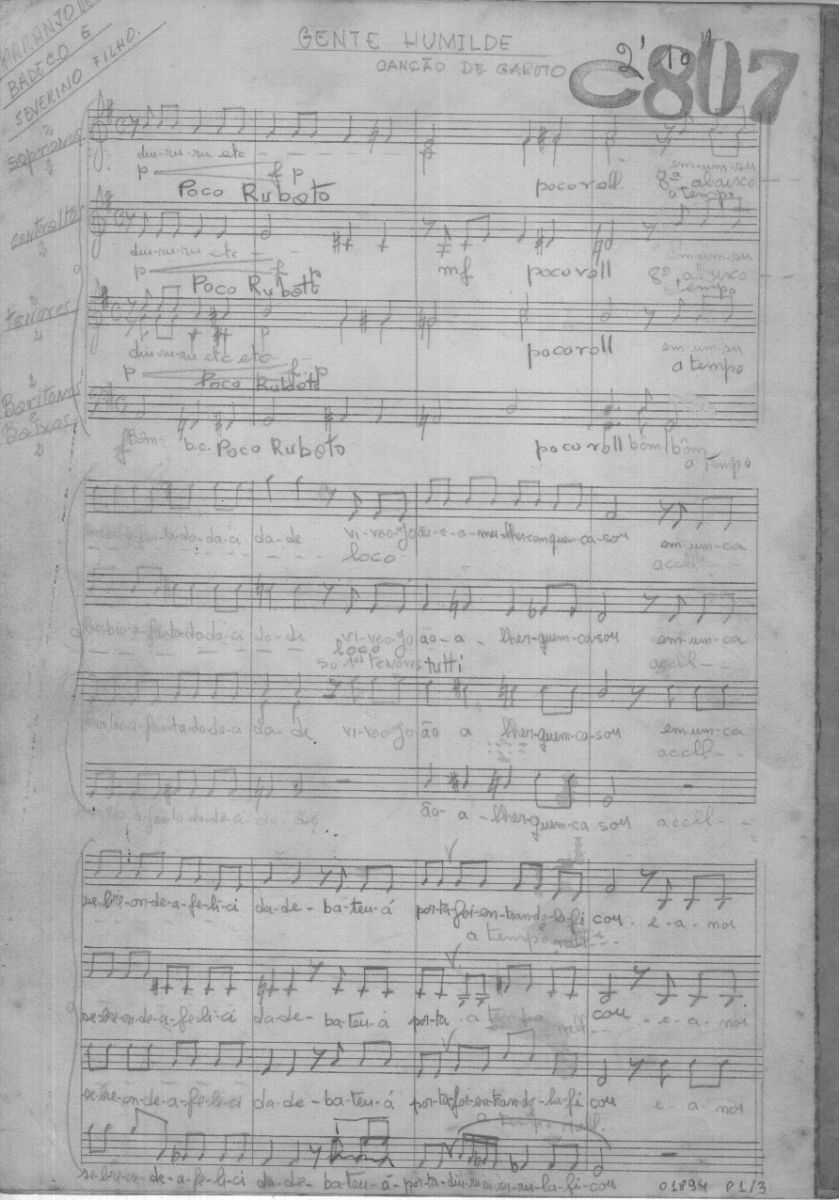 ARRANJO DE
BADECO E
SEVERINO FILHO.
GENTE HUMILDE
CANÇÃO DE GAROTO
2' 10"
C807
sopranos
diu-ru-ru etc
p f p
Poco Ruboto
poco roll.
em-um-su
8ª abaixo
a tempo
contraltos
diu-ru-ru etc
p f p
Poco Rubatto
mf
poco roll
em-um-su
8ª abaixo
a tempo
tenores
diu-ru-ru etc etc
p f p
Poco Rubatto
poco roll
em-um-su
a tempo
Baritonos
e
Baixos
f Bom- b.c. Poco Ruboto
poco roll bôm bôm
a tempo
da-de vi-veo-jo ão-e-a-mu-lher-com-quem-ca-sou em-um-ca
loco
accell
da-de vi-veo-jo ão-a-lher-quem-ca-sou em-um-ca
loco
accell
só 1os tenores tutti
da-de vi-veo-jo ão a lher-quem-ca-sou em-um-ca
accell
ão-a-lher-quem-ca sou accell
se-bre-on-de-a-fe-li-ci da-de-ba-teu-á por-ta-foi-en-tran-do-la-fi cou. e-a-noi
a tempo rall
se-bre-on-de-a-fe-li-ci da-de-ba-teu-á por-ta a tempo rall cou e-a-noi
se-bre-on-de-a-fe-li-ci da-de-ba-teu-á por-ta-foi-en-tran-do-la-fi cou e-a-noi
a tempo rall.
se-bre-on-de-a-fe-li-ci da-de-ba-teu-á-por-ta-diu-ru-ru-ru-ru-la-fi-cou
01894 P1/3